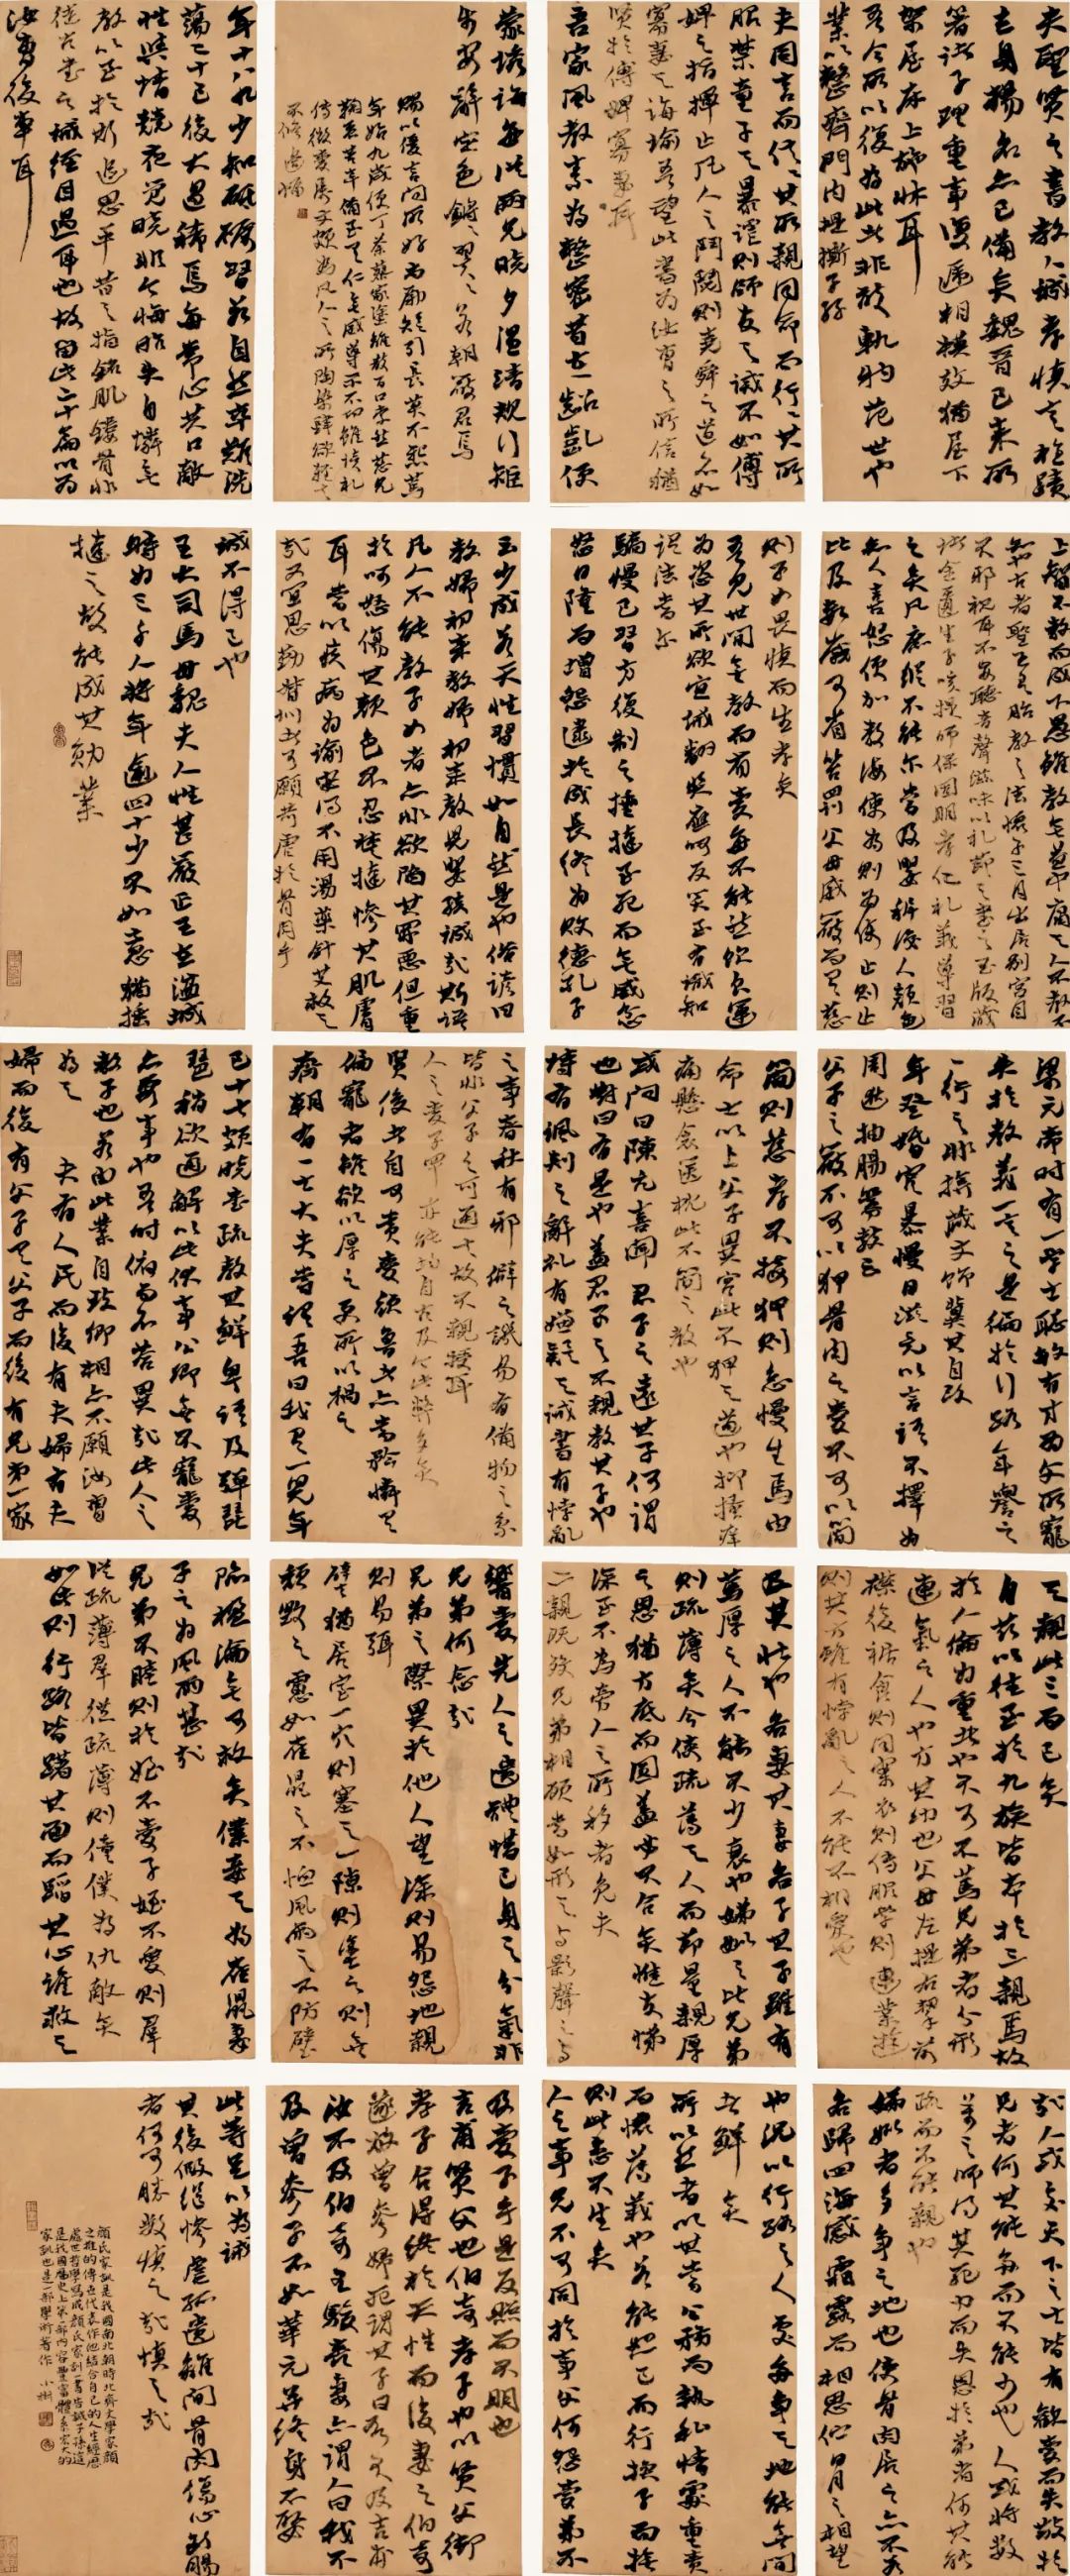 夫聖賢之書教人誠孝慎言檢蹟
立身揚名亦已備矣魏晉已來所
著諸子理重事復遞相模效猶屋下
架屋床上施牀耳
吾今所以復為此者非敢軌物范世也
業以整齊門內提撕子孫
夫同言而信信其所親同命而行行其所
服禁童子之暴謔則師友之誡不如傅
婢之指揮止凡人之鬥鬩則堯舜之道不如
寡妻之誨諭吾望此書為汝曹之所信猶
賢於傅婢寡妻耳
吾家風教素為整密昔在齠齔便
蒙誘誨每從兩兄曉夕溫凊規行矩
步安辭定色鏘鏘翼翼若朝嚴君焉
賜以優言問所好尚勵短引長莫不懇篤
年始九歲便丁荼蓼家塗離散百口索然慈兄
鞠養苦辛備至有仁無威導示不切雖讀礼
傳微愛屬文頗為凡人之所陶染肆欲輕言
不脩邊幅
年十八九少知砥礪習若自然卒難洗
蕩二十已後大過稀焉每常心共口敵
性與情競夜覺曉非今悔昨失自憐無
教以至於斯追思平昔之指銘肌鏤骨非
徒古書之誡經目過耳也故留此二十篇以為
汝曹後車耳
上智不教而成下愚雖教無益中庸之人不教不
知也古者聖王有胎教之法懷子三月出居別宮目
不邪視耳不妄聽音聲滋味以礼節之書之玉版藏
諸金匱生子咳提師保固明孝仁礼義導習
之矣凡庶縱不能尔當及嬰稚識人顏色
知人喜怒便加教誨使為則為使止則止
比及數歲可省笞罰父母威嚴而有慈
則子女畏慎而生孝矣
吾見世間無教而有愛每不能然飲食運
為恣其所欲宜誡翻奬應呵反笑至有識知
謂法當尔
驕慢已習方復制之捶撻至死而無威忿
怒日隆而增怨逮於成長終為敗德孔子
云少成若天性習慣如自然是也俗諺曰
教婦初來教婦初來教兒嬰孩誠哉斯語
凡人不能教子女者亦非欲陷其罪惡但重
於呵怒傷其顏色不忍楚撻慘其肌膚
耳當以疾病為諭安得不用湯藥針艾救之
哉又宜思勤督訓者可願苛虐於骨肉乎
誠不得已也
王大司馬母魏夫人性甚嚴正王在湓城
時為三千人將年逾四十少不如意猶捶
撻之故能成其勳業
梁元帝時有一學士聰敏有才為父所寵
失於教義一言之是徧於行路年譽之
一行之非揜藏文飾冀其自改
年登婚宦暴慢日滋竟以言語不擇為
周逖抽腸釁鼓云
父子之嚴不可以狎骨肉之愛不可以簡
簡則慈孝不接狎則怠慢生焉由
命士以上父子異宮此不狎之道也抑搔癢
痛懸衾篋枕此不簡之教也
或問曰陳亢喜聞君子之遠其子何謂
也對曰有是也蓋君子之不親教其子也
詩有諷刺之辭礼有嫌疑之誡書有悖亂
之事春秋有邪僻之譏易有備物之象
皆非父子之可通言故不親授耳
人之愛子罕亦能均自古及今此弊多矣
賢俊者自可賞愛頑魯者亦當矜憐有
偏寵者雖欲以厚之更所以禍之
齊朝有一士大夫嘗謂吾曰我有一兒年
已十七頗曉書疏教其鮮卑語及彈琵
琶稍欲通解以此伏事公卿無不寵愛
亦要事也吾時俯而不答異哉此人之
教子也若由此業自致卿相亦不願汝曹
為之 夫有人民而後有夫婦有夫
婦而後有父子有父子而後有兄弟一家
之親此三而已矣
自茲以往至於九族皆本於三親焉故
於人倫為重者也不可不篤兄弟者分形
連氣之人也方其幼也父母左提右挈前
襟後裾食則同案衣則傳服學則連業遊
則共方雖有悖亂之人不能不相愛也
及其壯也各妻其妻各子其子雖有
篤厚之人不能不少衰也娣姒之比兄弟
則疏薄矣今使疏薄之人而節量親厚
之恩猶方底而圓蓋必不合矣惟友悌
深至不為旁人之所移者免夫
二親既歿兄弟相顧當如形之與影聲之與
響愛先人之遺體惜己身之分氣非
兄弟何念哉
兄弟之際異於他人望深則易怨地親
則易弭
譬猶居室一穴則塞之一隙則塗之則無
頹毀之慮如雀鼠之不恤風雨之不防壁
陷楹淪無可救矣僕妾之為雀鼠妻
子之為風雨甚哉
兄弟不睦則子姪不愛子姪不愛則羣
從疏薄羣從疏薄則僮僕為仇敵矣
如此則行路皆踖其面而蹈其心誰救之
哉人或交天下之士皆有歡愛而失敬於
兄者何其能多而不能少也人或將數
萬之師得其死力而失恩於弟者何其能
疏而不能親也
娣姒者多爭之地也使骨肉居之亦不若
各歸四海感霜露而相思佇日月之相望
也況以行路之人處多爭之地能無間
者鮮矣
所以然者以其當公務而執私情處重責
而懷薄義也若能恕己而行換子而撫
則此患不生矣
人之事兄不可同於事父何怨愛弟不
及愛子乎是反照而不明也
吉甫賢父也伯奇孝子也以賢父御
孝子合得終於天性而後妻之伯奇
遂放曾參婦死謂其子曰吾不及吉甫
汝不及伯奇王駿喪妻亦謂人曰我不
及曾參子不如華元並終身不娶
此等足以為誡
其後假繼慘虐孤遺離間骨肉傷心斷腸
者何可勝數慎之哉慎之哉
顏氏家訓是我國南北朝時北齊文學家顏
之推的傳世代表作他結合自己的人生經歷
處世哲學寫成顏氏家訓一書告誡子孫這
是我國歷史上第一部內容豐富體系宏大的
家訓也是一部學術著作 小樹